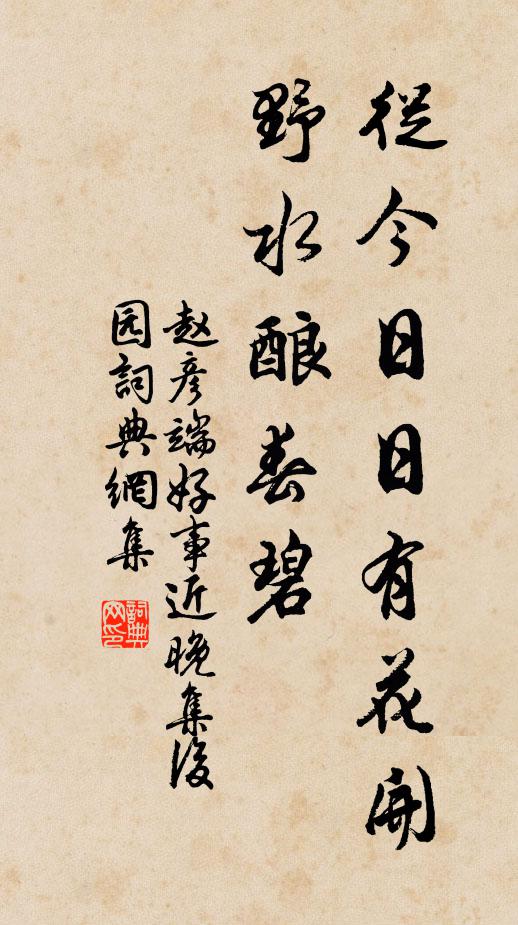 從今日日有花開
野水酿春碧
赵彦端好事近晚集後
园詞典網集
詞典网印